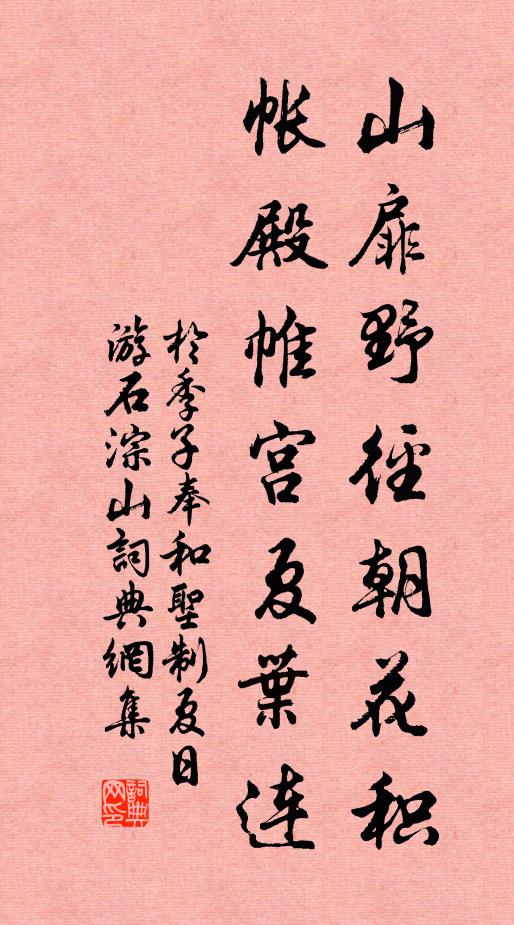 山扉野徑朝花积
帐殿帷宫夏葉连
於季子奉和聖制夏日
游石淙山詞典網集
詞典
网印